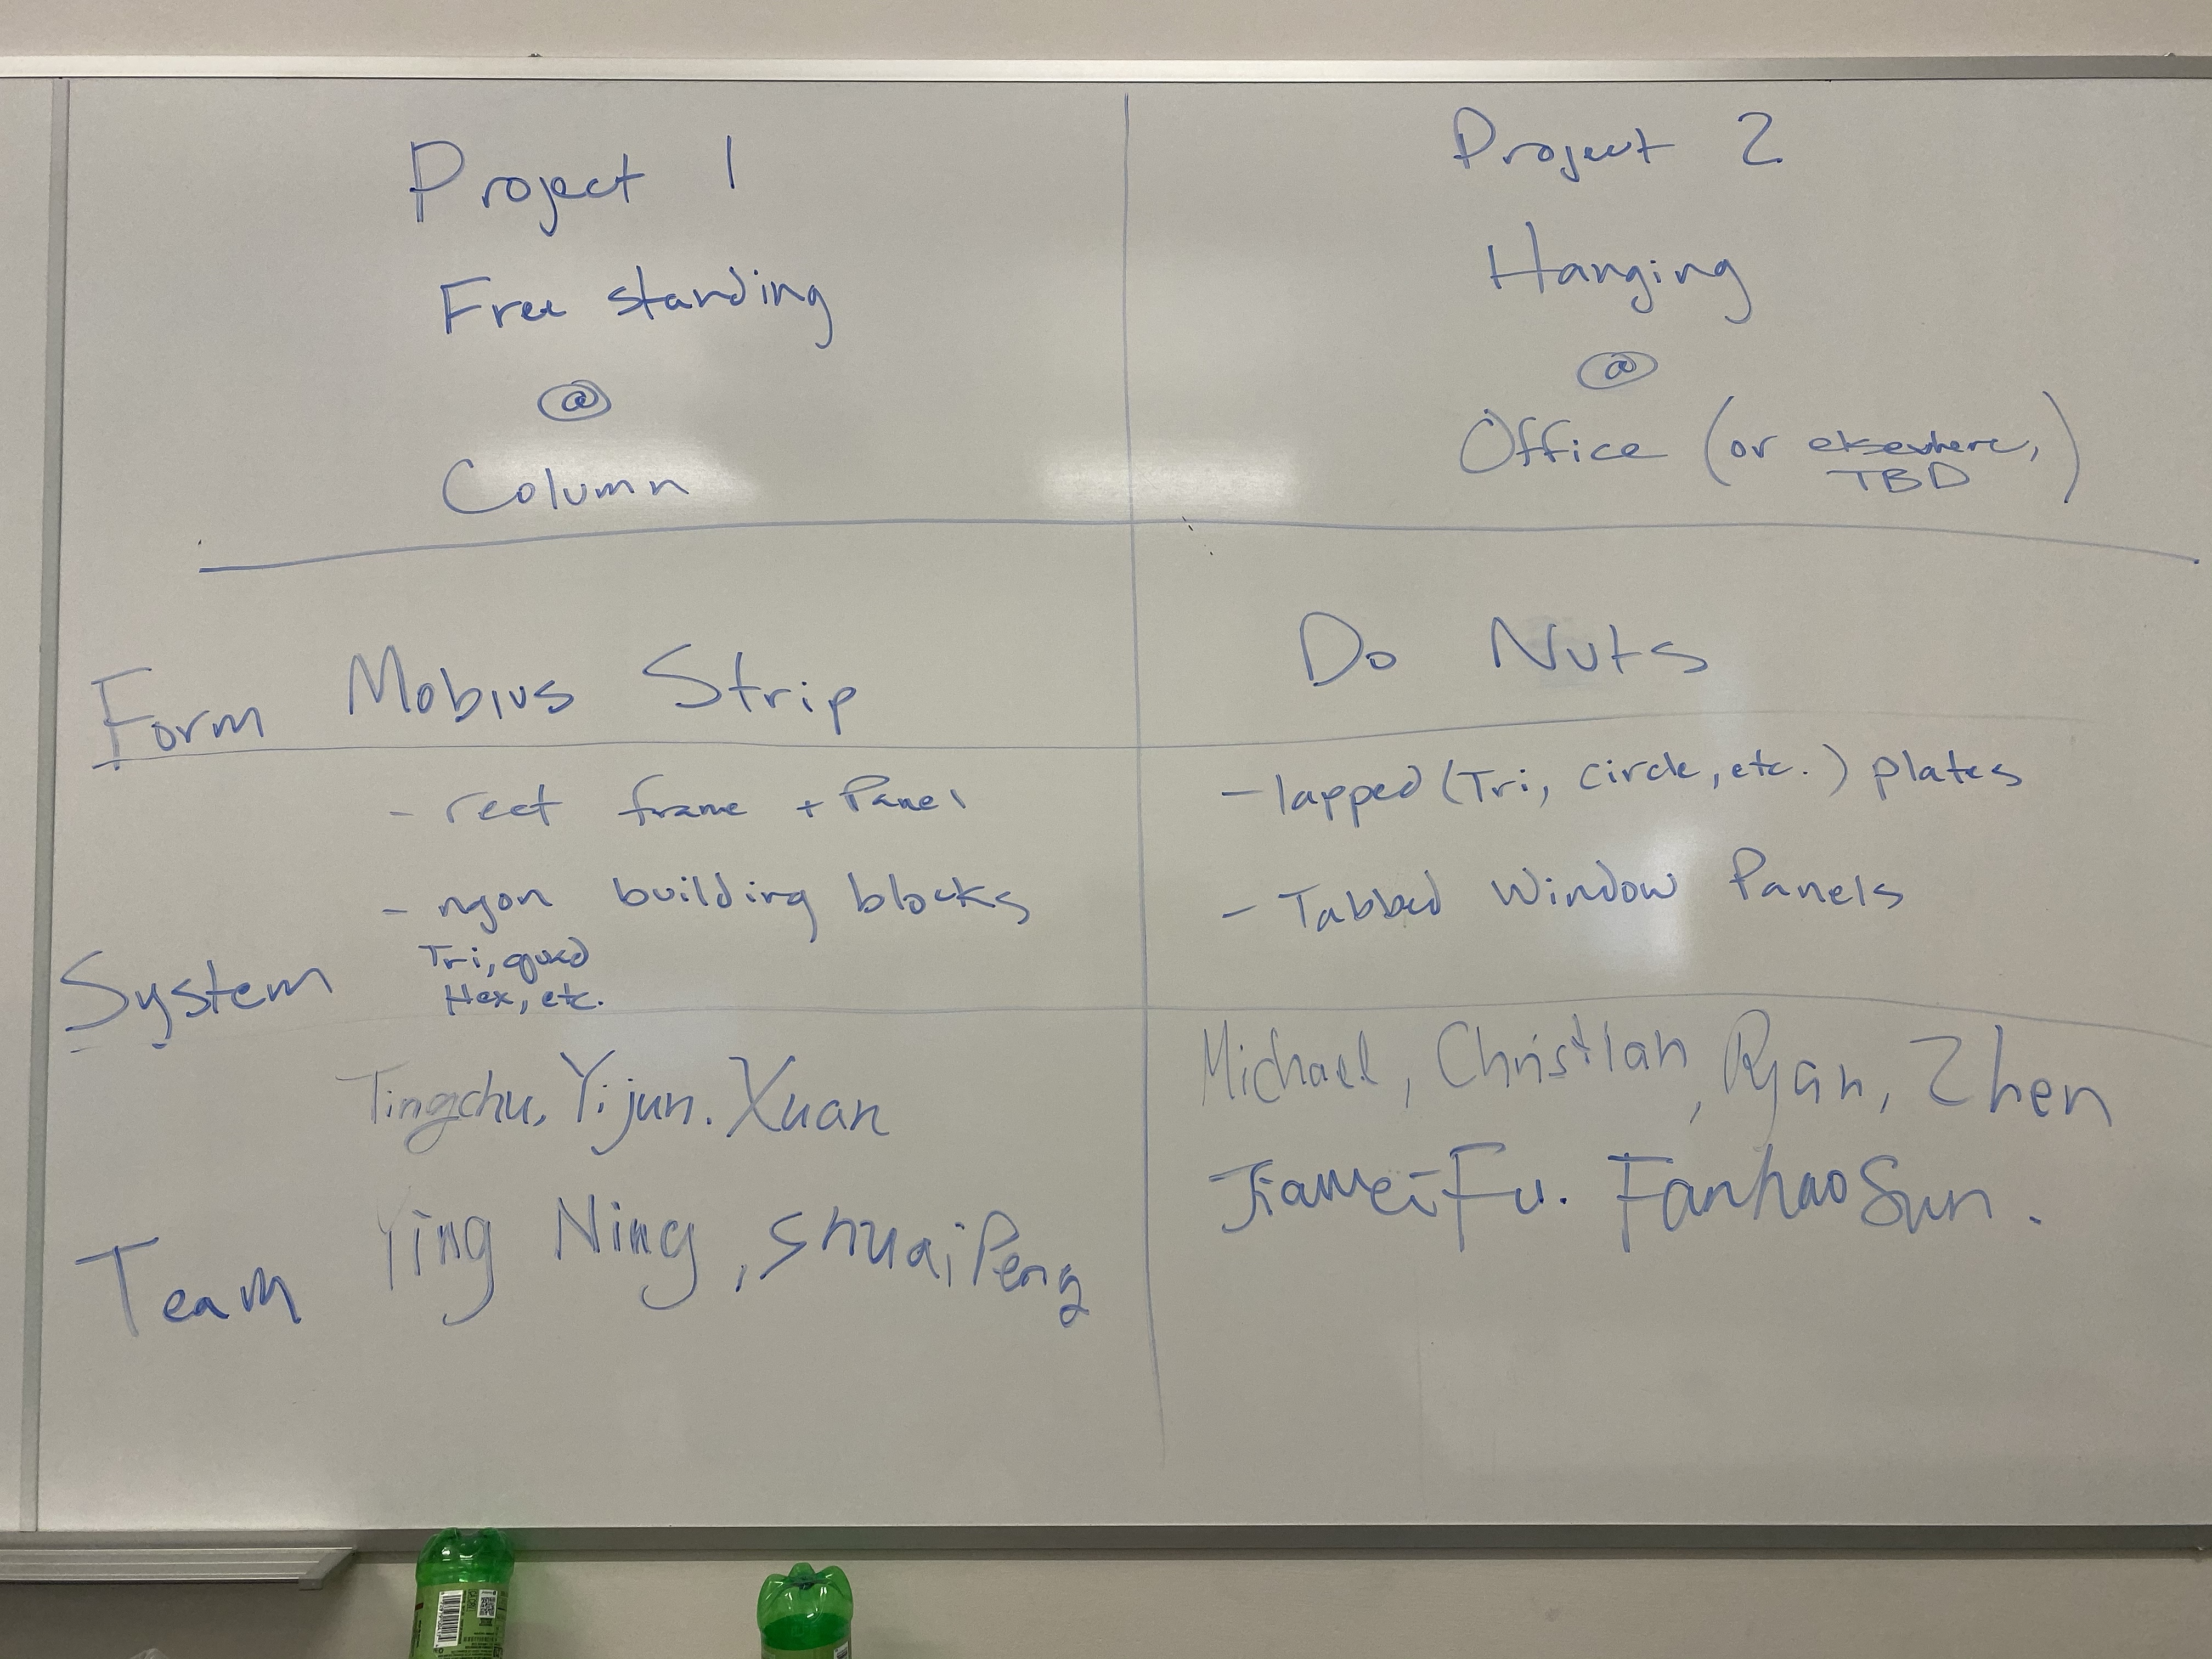 Project 1
Free standing
@
Column
Project 2
Hanging
@
Office (or elsewhere,
TBD)
Form
Mobius Strip
Do Nuts
System
- rect frame + Panel
- ngon building blocks
Tri, quad
Hex, etc.
- lapped (Tri, circle, etc.) plates
- Tabbed Window Panels
Team
Tingchu, Yijun. Xuan
Ying Ning, Shuai Peng
Michael, Christian, Ryan, Zhen
Jiawei Fu. Fanhao Sun.